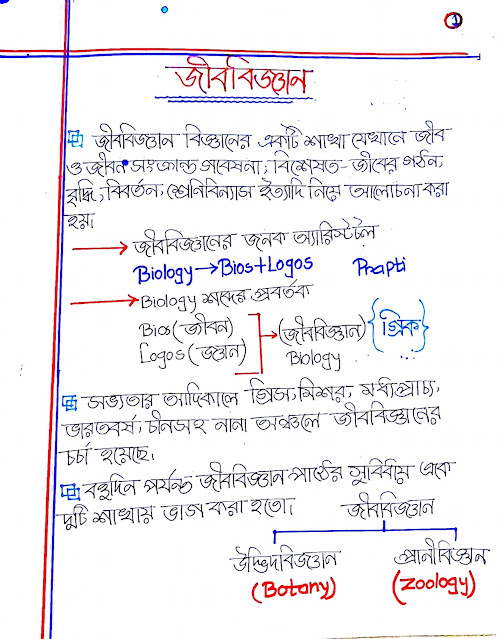 1
জীববিজ্ঞান
জীববিজ্ঞান বিজ্ঞানের একটি শাখা যেখানে জীব
ও জীবন সংক্রান্ত গবেষনা, বিশেষত- জীবের গঠন,
বৃদ্ধি, বিবর্তন, শ্রেনিবিন্যাস ইত্যাদি নিয়ে আলোচনা করা
হয়।
জীববিজ্ঞানের জনক অ্যারিস্টটল
Biology → Bios + Logos
Biology শব্দের প্রবর্তক
Bios (জীবন)
Logos (জ্ঞান)
→ (জীববিজ্ঞান) {গ্রিক}
Biology
সভ্যতার আদিকালে গ্রিস, মিশর, মধ্যপ্রাচ্য,
ভারতবর্ষ, চীনসহ নানা অঞ্চলে জীববিজ্ঞানের
চর্চা হয়েছে।
বহুদিন পর্যন্ত জীববিজ্ঞান পাঠের সুবিধায় একে
দুটি শাখায় ভাগ করা হতো।
জীববিজ্ঞান
উদ্ভিদবিজ্ঞান প্রানীবিজ্ঞান
(Botany) (Zoology)